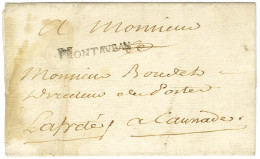 A Monsieur
MONTAUBAN
Monsieur Boudet
Directeur des Postes
Lafrete a Caussade